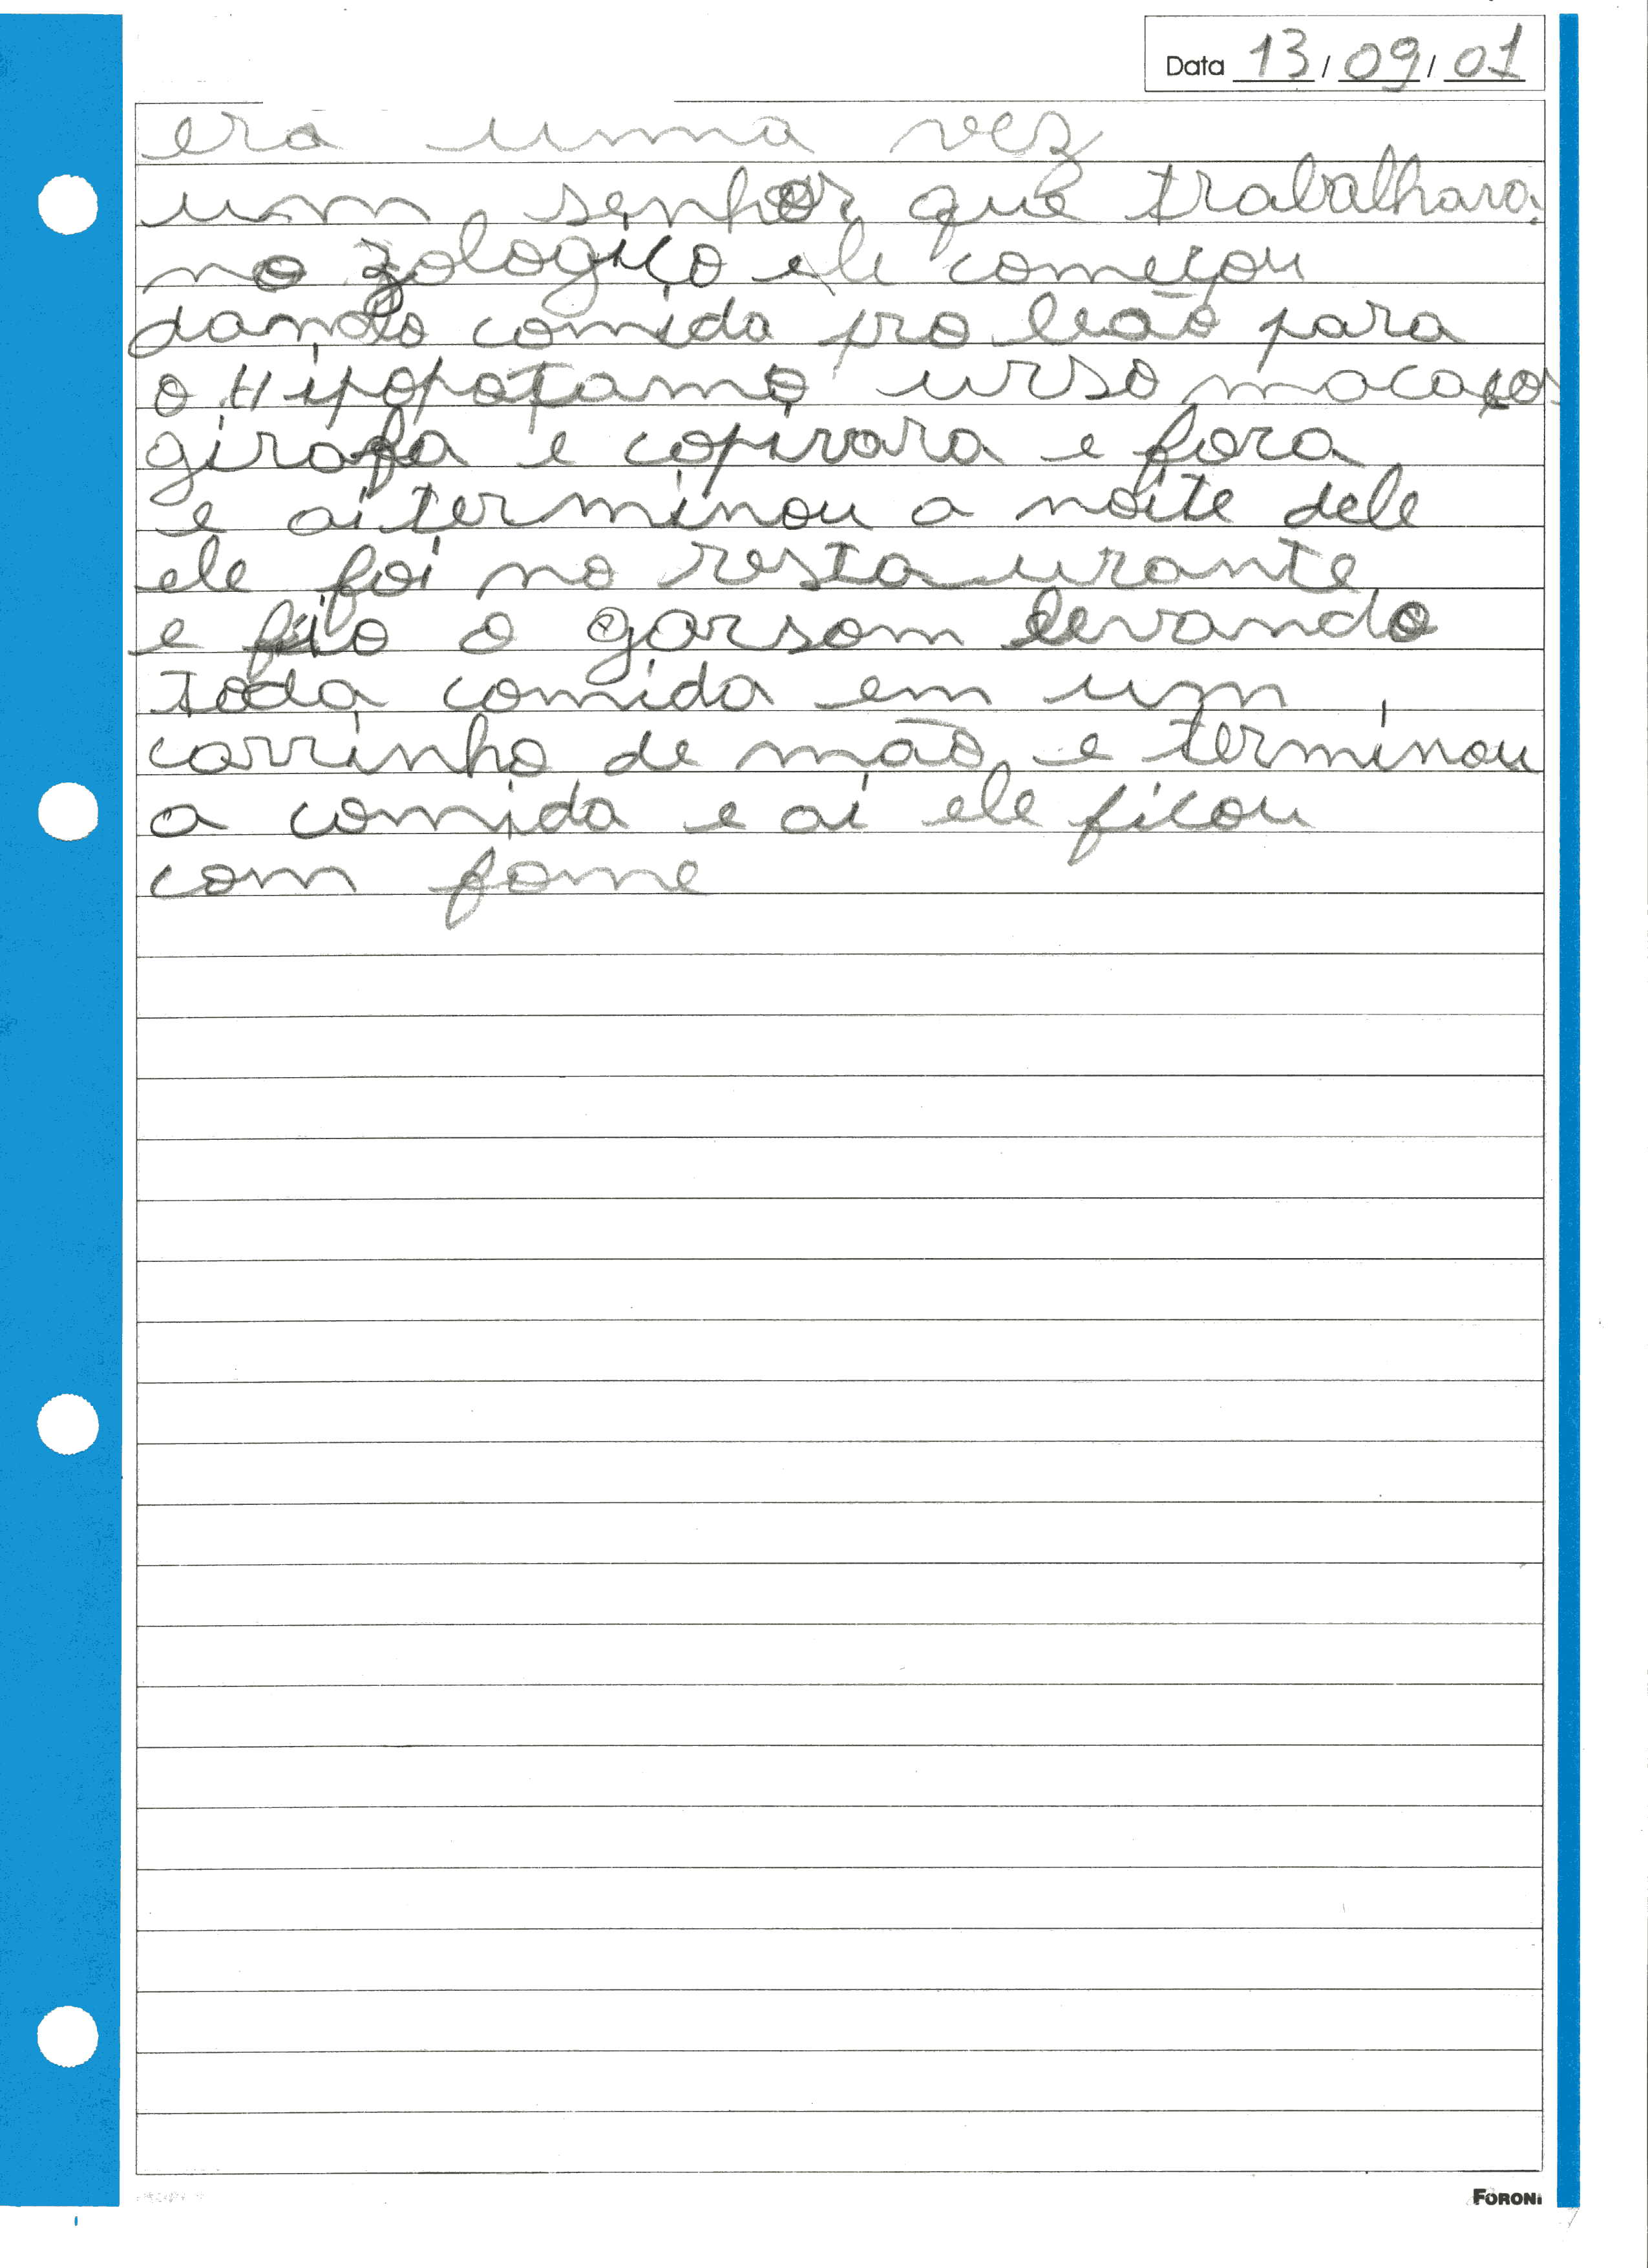 Data 13/09/01
era uma vez
um senhor que trabalhava
no zologico ele começou
dando comida pro leão para
o Hipopotamo urso macacos
girafa e copivara e foca
e ai terminou a noite dele
ele foi no restaurante
e o garsom levando
toda comida em um
carrinho de mão e terminou
a comida e ai ele ficou
com fome
FORONI